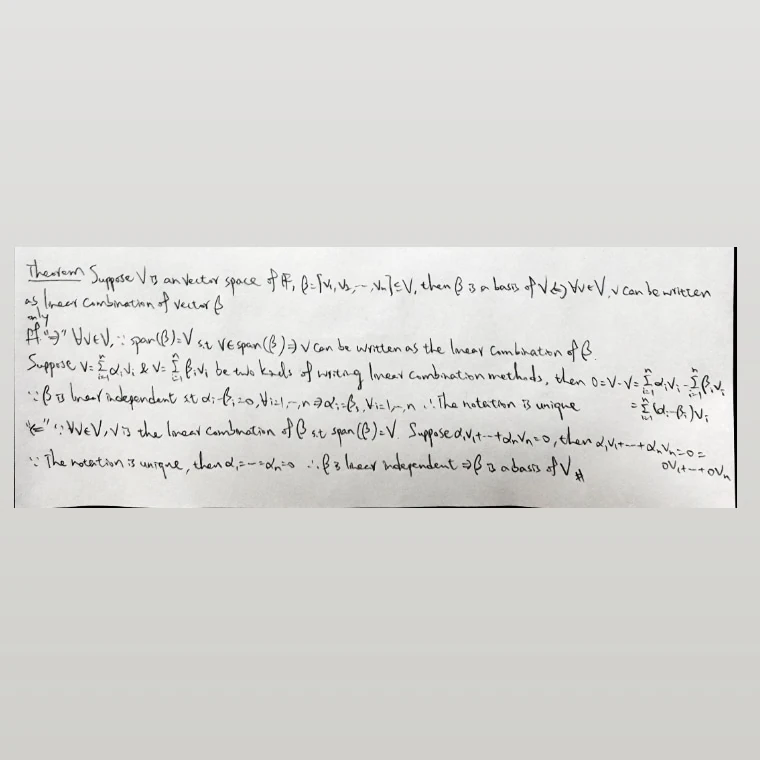 Theorem Suppose V is an vector space of F, β={v₁,v₂,…,vₙ}⊆V, then β is a basis of V ⇔ ∀v∈V, v can be written
as linear combination of vector β
only
Pf "⇒" ∀v∈V, ∵ span(β)=V s.t v∈span(β) ⇒ v can be written as the linear combination of β.
Suppose v=∑ⁿᵢ₌₁αᵢvᵢ & v=∑ⁿᵢ₌₁βᵢvᵢ be two kinds of writing linear combination methods, then 0=v-v=∑ⁿᵢ₌₁αᵢvᵢ-∑ⁿᵢ₌₁βᵢvᵢ
∵ β is linear independent st αᵢ-βᵢ=0, ∀i=1,…,n ⇒ αᵢ=βᵢ, ∀i=1,…,n ∴ The notation is unique =∑ⁿᵢ₌₁(αᵢ-βᵢ)vᵢ
"⇐" ∵ ∀v∈V, v is the linear combination of β s.t span(β)=V. Suppose α₁v₁+…+αₙvₙ=0, then α₁v₁+…+αₙvₙ=0=
0v₁+…+0vₙ
∵ The notation is unique, then α₁=…=αₙ=0 ∴ β is linear independent ⇒ β is a basis of V #